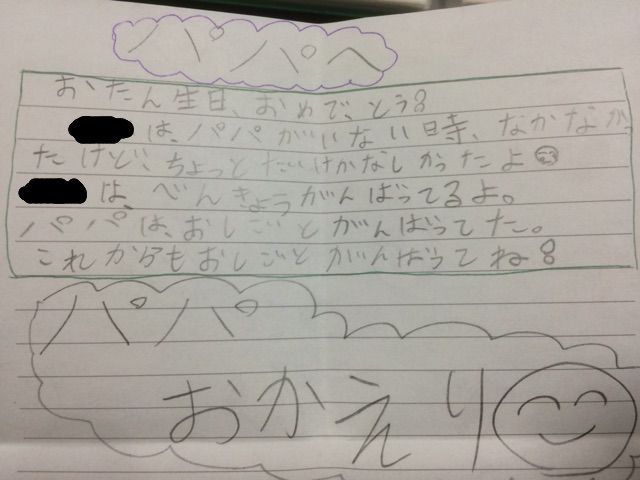 パパへ
おたん生日、おめでとう
は、パパがいない時、なかなか
たけど、ちょっとだけかなしかったよ
は、べんきょうがんばってるよ。
パパは、おしごとがんばってた。
これからもおしごとがんばってね
パパ
おかえり